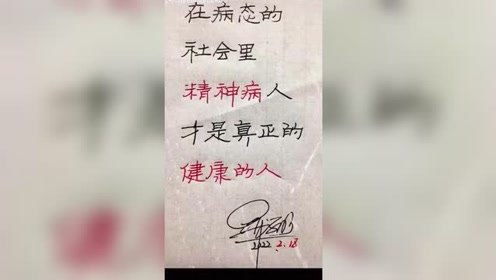 在病态的
社会里
精神病人
才是真正的
健康的人
2022.2.18